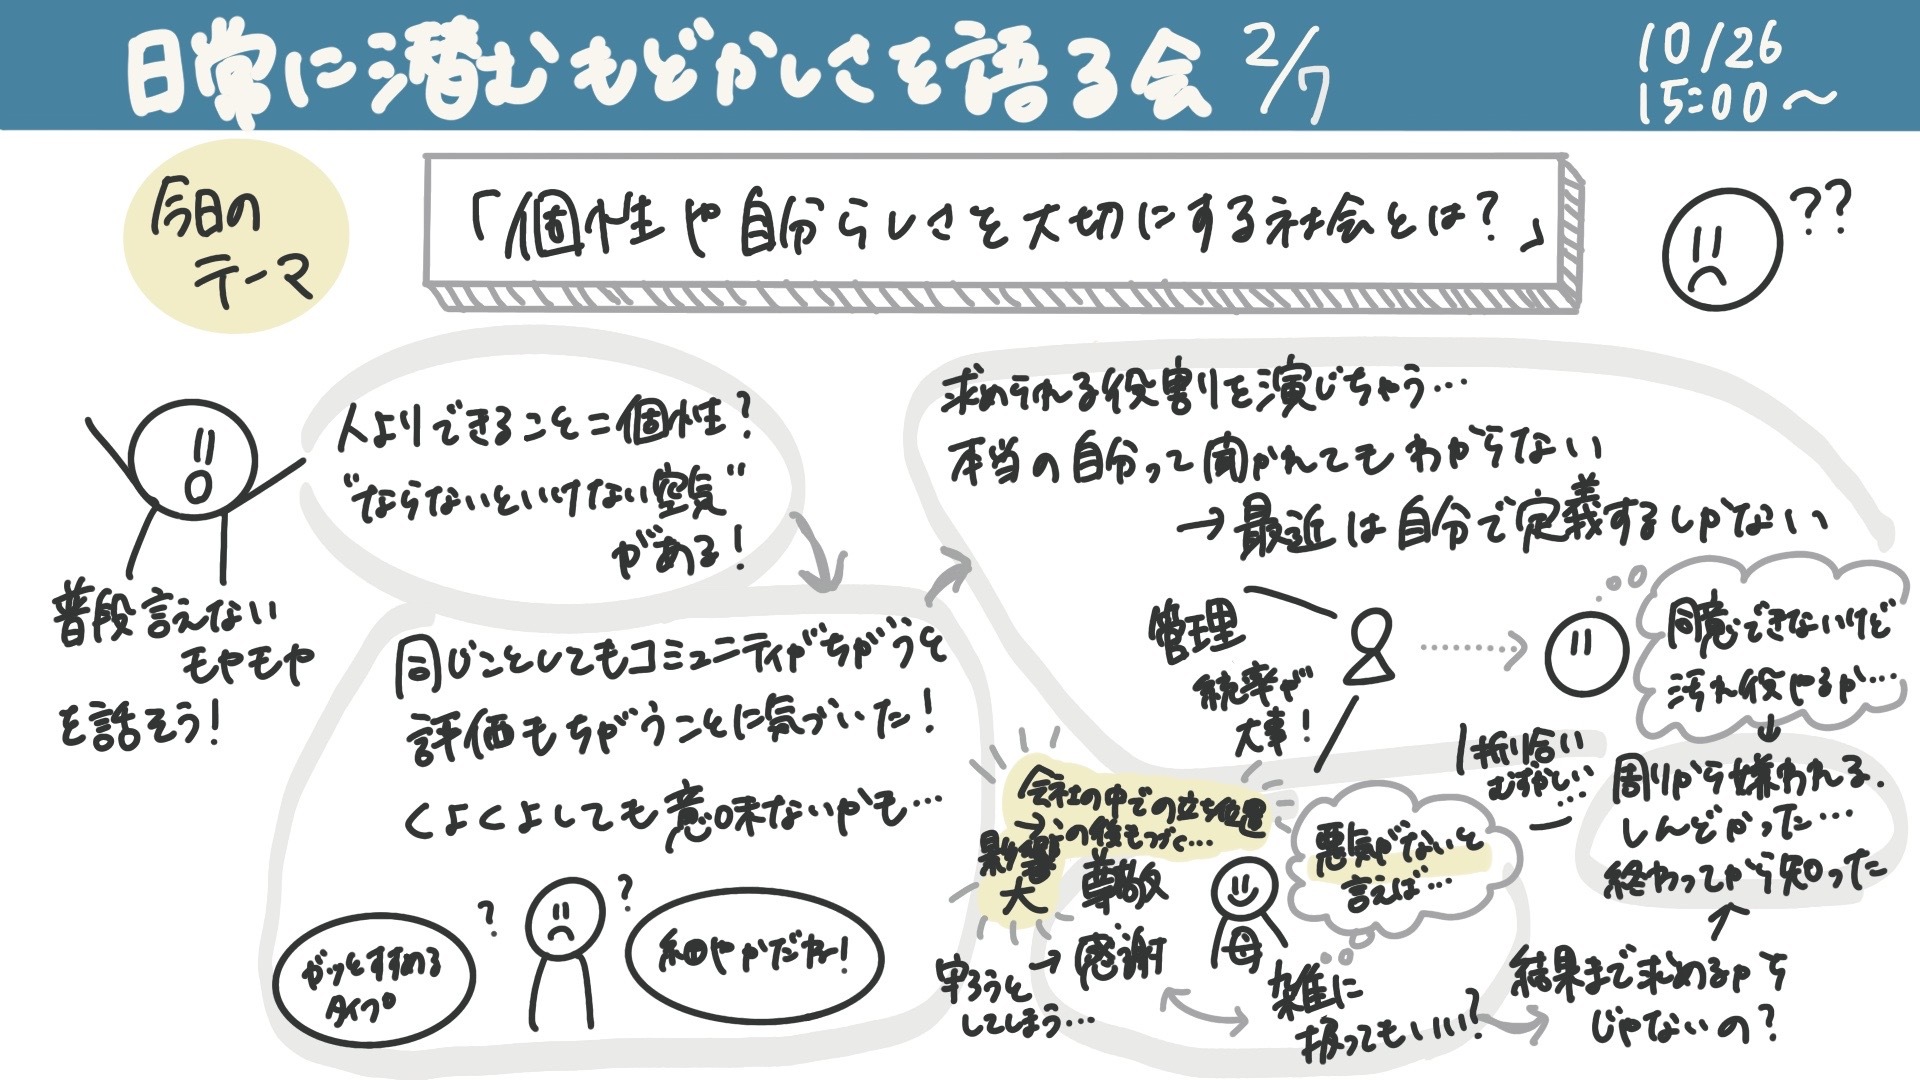 日常に潜むもどかしさを語る会 2/7
10/26
15:00〜
今日の
テーマ
「個性や自分らしさを大切にする社会とは?」
??
人よりできること=個性?
“ならないといけない空気”
がある!
普段言えない
モヤモヤ
を話そう!
同じことしてもコミュニティがちがうと
評価もちがうことに気づいた!
くよくよしても意味ないかも…
?
?
ガッとすすめる
タイプ
細やかだね!
求められる役割りを演じちゃう…
本当の自分って聞かれてもわからない
→最近は自分で定義するしかない
管理
統率が
大事!
同意できないけど
汚れ役やるか…
折り合い
むずかしい…
周りから嫌われる.
しんどかった…
終わってから知った
会社の中での立ち位置
→この後もつづく…
影響
大
尊敬
→感謝
守ろうと
してしまう…
母
悪気がないと
言えば…
雑に
扱ってもいい?
結果まで求めるやち
じゃないの?